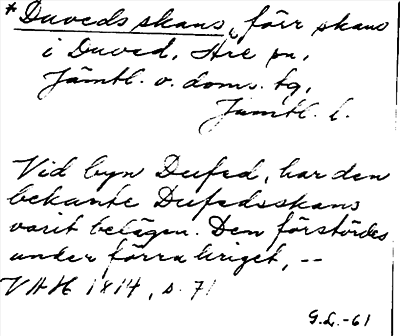 *Duveds skans, förr skans
i Duved, Åre sn,
Jämtl. v. doms. tg,
Jämtl. l.
Vid byn Dufed, har den
bekante Dufedsskans
varit belägen. Den förstördes
under förra kriget, --
VHH 1814, s. 71
G.L. -61